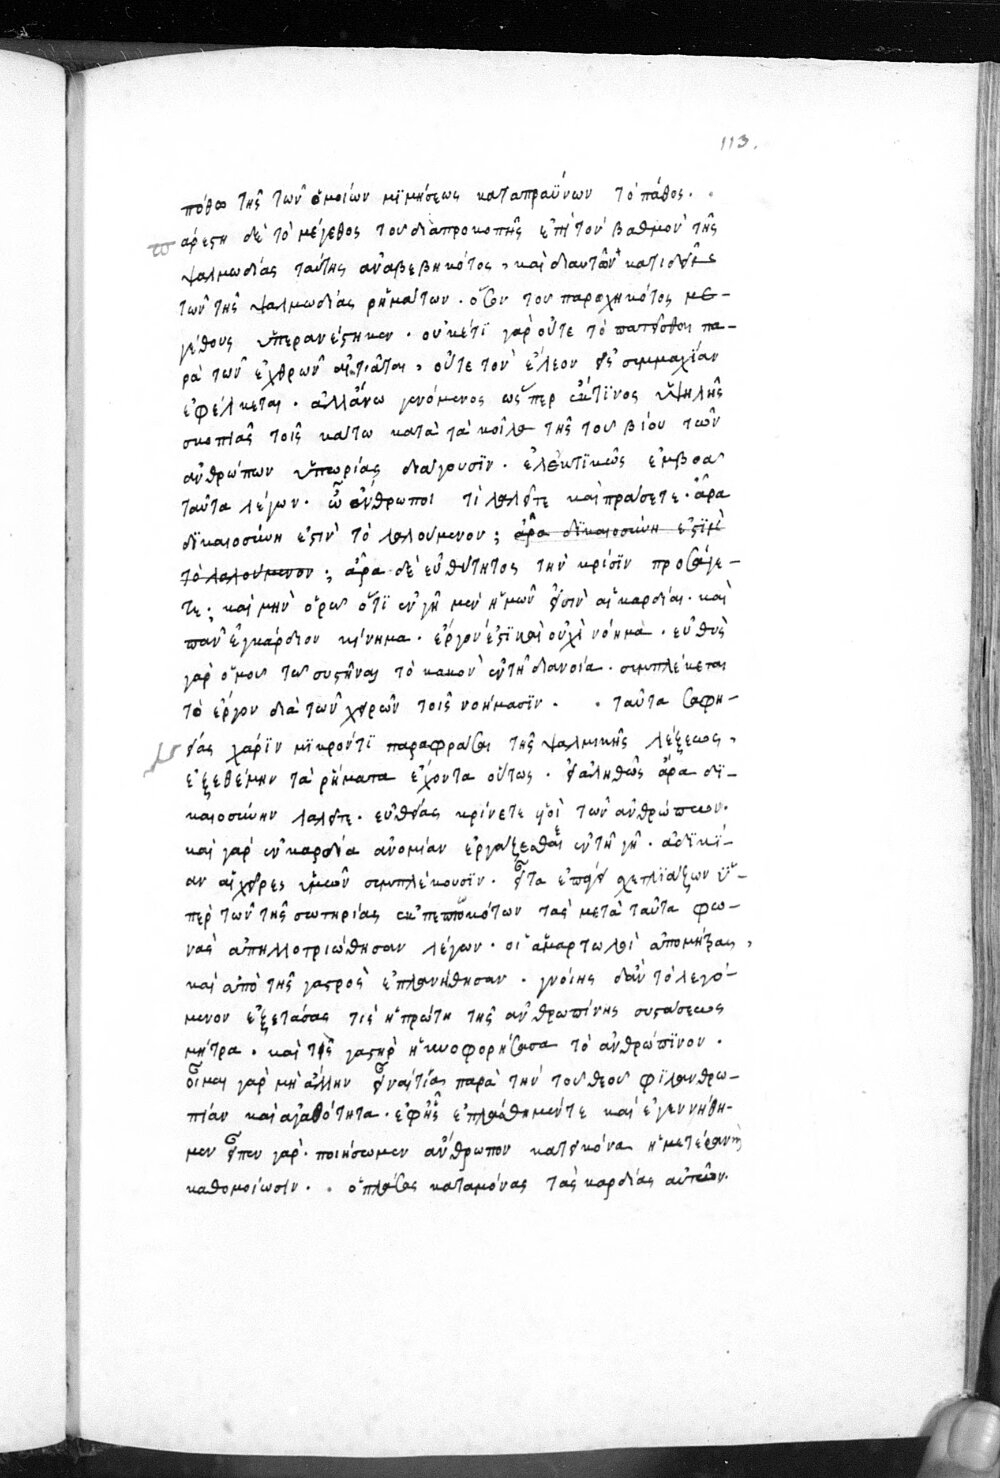 113.
πόθω τῆς τῶν ὁμοίων μϊμήσεως καταπραΰνων τὸ πάθος.
πάρεστι δὲ τὸ μέγεθος τοῦ διαπροκοπῆς ἐπὶ τὸν βαθμὸν τῆς
ψαλμωδίας ταύτης ἀναβεβηκότος, καὶ διαυτῶν κατιδεῖν
τῶν τῆς ψαλμωδίας ῥημάτων. ὅσον τοῦ παρωχηκότος με-
γέθους ὑπερανέστηκεν. οὐκέτϊ γὰρ οὔτε τὸ πατεῖσθαι πα-
ρὰ τῶν ἐχθρῶν αἰτιᾶται, οὔτε τὸν ἔλεον εἰς συμμαχίαν
ἐφέλκεται. ἀλλάνω γενόμενος ὥσπερ ἔκτϊνος ὑψηλῆς
σκοπιᾶς τοῖς κάτω κατὰ τὰ κοῖλα τῆς τοῦ βίου τῶν
ἀνθρώπων ὑπωρίας διάγουσϊν. ἐλεκτϊκῶς ἐμβοᾶ
ταῦτα λέγων. ὦ ἄνθρωποι τί λαλεῖτε καὶ πράσετε. ἆρα
δϊκαιοσύνη ἐστὶν τὸ λαλούμενον; ἆρα δϊκαιοσύνη ἐστϊν
τὸ λαλούμενον; ἆρα δὲ εὐθύτητος τὴν κρίσϊν προσάγε-
τε; καὶ μὴν ὁρῶ ὅτϊ ἐν γῆ μὲν ἡμῶν εἰσὶν αἱ καρδίαι. καὶ
πᾶν ἐγκάρδιον κίνημα. ἔργον ἐστϊ καὶ οὐχὶ νόημα. εὐθὺς
γὰρ ὁμοῦ τῶ συστῆναι τὸ κακὸν ἐν τῆ διανοία. συμπλέκεται
τὸ ἔργον διὰ τῶν χειρῶν τοῖς νοήμασϊν. ταῦτα σαφη-
νείας χάρϊν μϊκρόν τϊ παραφράσαι τῆς ψαλμικῆς λέξεως,
ἐξεθέμην τὰ ῥήματα ἔχοντα οὕτως. εἰ ἀληθῶς ἄρα δϊ-
καιοσύνην λαλεῖτε. εὐθείας κρίνετε υἱοὶ τῶν ἀνθρώπων.
καὶ γὰρ ἐν καρδία ἀνομίαν ἐργάζεσθαι ἐν τῆ γῆ. ἀδϊκί-
αν αἱ χεῖρες ὑμῶν συμπλέκουσϊν. εἶτα ἐπάγει σχετλϊάζων ὑ-
πὲρ τῶν τῆς σωτηρίας ἐκπεπτωκότων τὰς μετὰ ταῦτα φω-
νὰς ἀπηλλοτριώθησαν λέγων. οἱ ἁμαρτωλοὶ ἀπομήτρας,
καὶ ἀπὸ τῆς γαστρὸς ἐπλανήθησαν. γνοίης δἂν τὸ λεγό-
μενον ἐξετάσας τίς ἡ πρώτη τῆς ἀνθρωπίνης συστάσεως
μήτρα. καὶ τίς γαστὴρ ἡ κυοφορήσασα τὸ ἀνθρώπϊνον.
οἶμαι γὰρ μὴ ἄλλην εἶναι τίαν παρὰ τὴν τοῦ θεοῦ φϊλανθρω-
πίαν καὶ ἀγαθότητα. ἐφῆς ἐπλάσθημέν τε καὶ ἐγεννήθη-
μεν εἶπεν γάρ. ποιήσωμεν ἄνθρωπον κατεικόνα ἡμετέραν ἢ
καθομοίωσϊν. ὁ πλάσας καταμόνας τὰς καρδίας αὐτῶν.